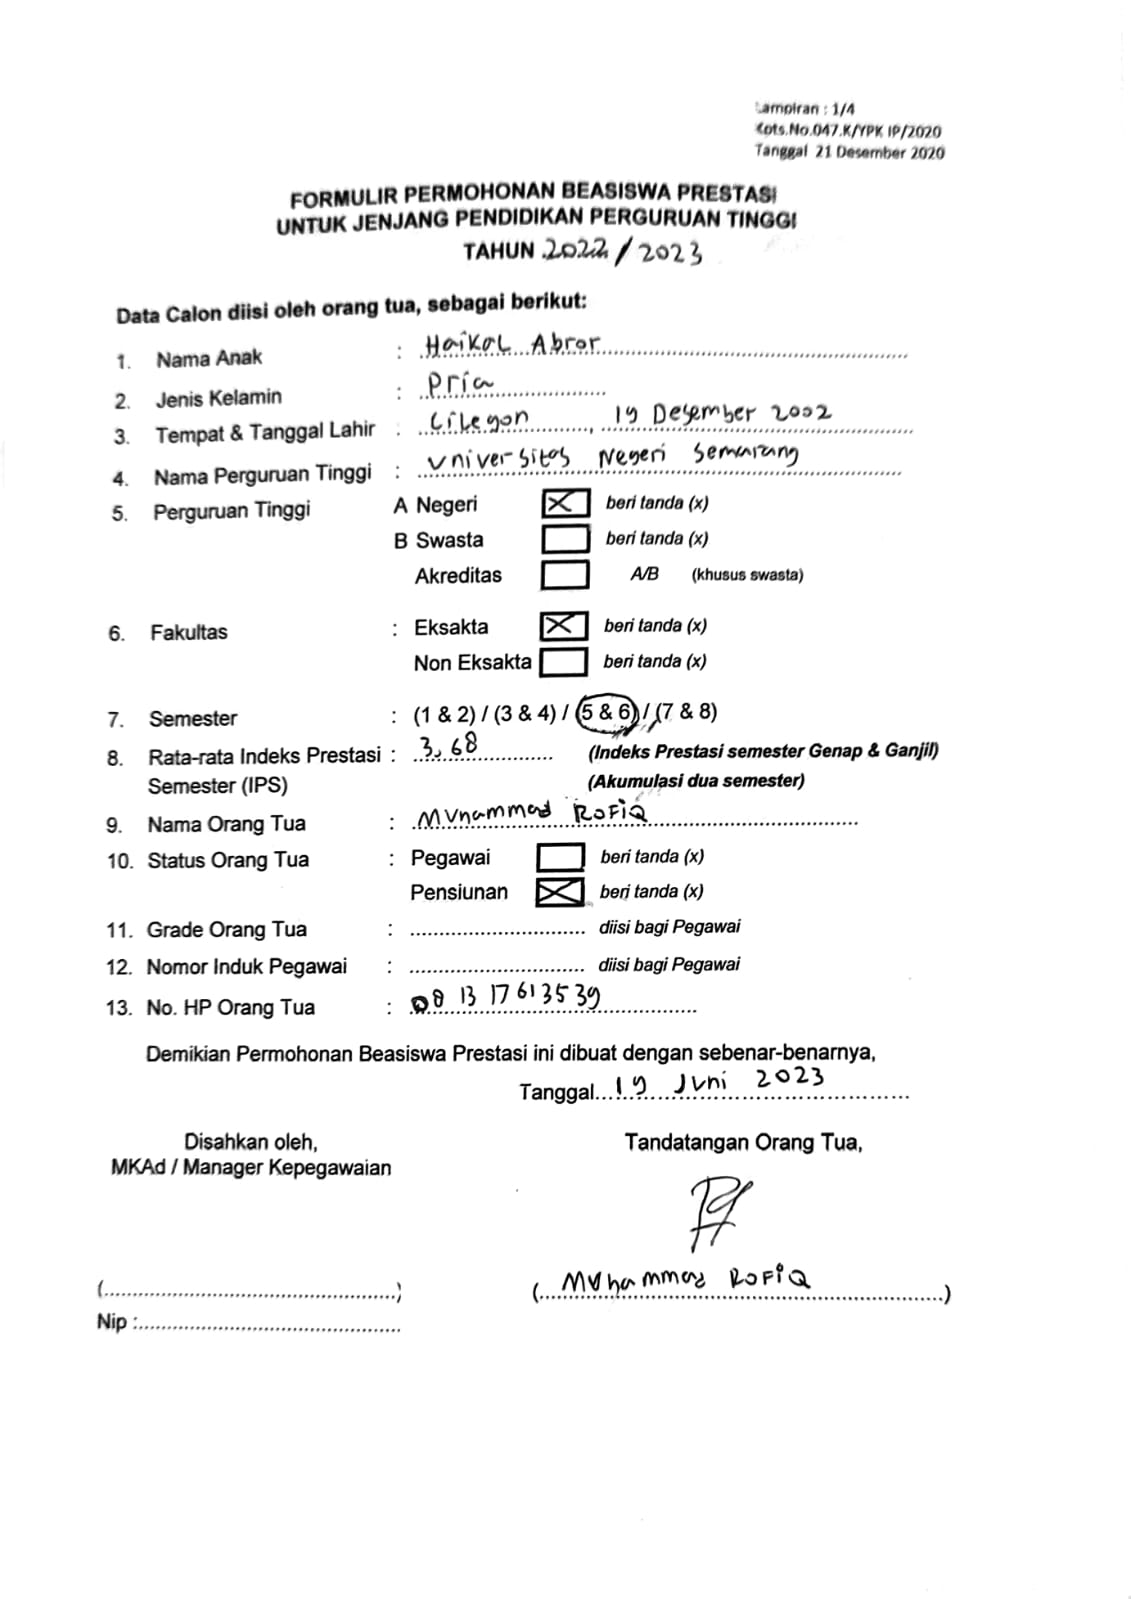 Lampiran : 1/4
Kpts.No.047.K/YPK IP/2020
Tanggal 21 Desember 2020
FORMULIR PERMOHONAN BEASISWA PRESTASI
UNTUK JENJANG PENDIDIKAN PERGURUAN TINGGI
TAHUN 2022/2023
Data Calon diisi oleh orang tua, sebagai berikut:
1. Nama Anak : Haikal Abror
2. Jenis Kelamin : Pria
3. Tempat & Tanggal Lahir : Cilegon, 19 Desember 2002
4. Nama Perguruan Tinggi : Universitas Negeri Semarang
5. Perguruan Tinggi A Negeri X beri tanda (x)
B Swasta beri tanda (x)
Akreditas A/B (khusus swasta)
6. Fakultas : Eksakta X beri tanda (x)
Non Eksakta beri tanda (x)
7. Semester : (1 & 2) / (3 & 4) / (5 & 6) / (7 & 8)
8. Rata-rata Indeks Prestasi : 3,68 (Indeks Prestasi semester Genap & Ganjil)
Semester (IPS) (Akumulasi dua semester)
9. Nama Orang Tua : Muhammad Rofiq
10. Status Orang Tua : Pegawai beri tanda (x)
Pensiunan X beri tanda (x)
11. Grade Orang Tua : .............................. diisi bagi Pegawai
12. Nomor Induk Pegawai : .............................. diisi bagi Pegawai
13. No. HP Orang Tua : 08 13 17613539
Demikian Permohonan Beasiswa Prestasi ini dibuat dengan sebenar-benarnya,
Tanggal 19 Juni 2023
Disahkan oleh, Tandatangan Orang Tua,
MKAd / Manager Kepegawaian
(..................................................) (Muhammad Rofiq)
Nip :..............................................